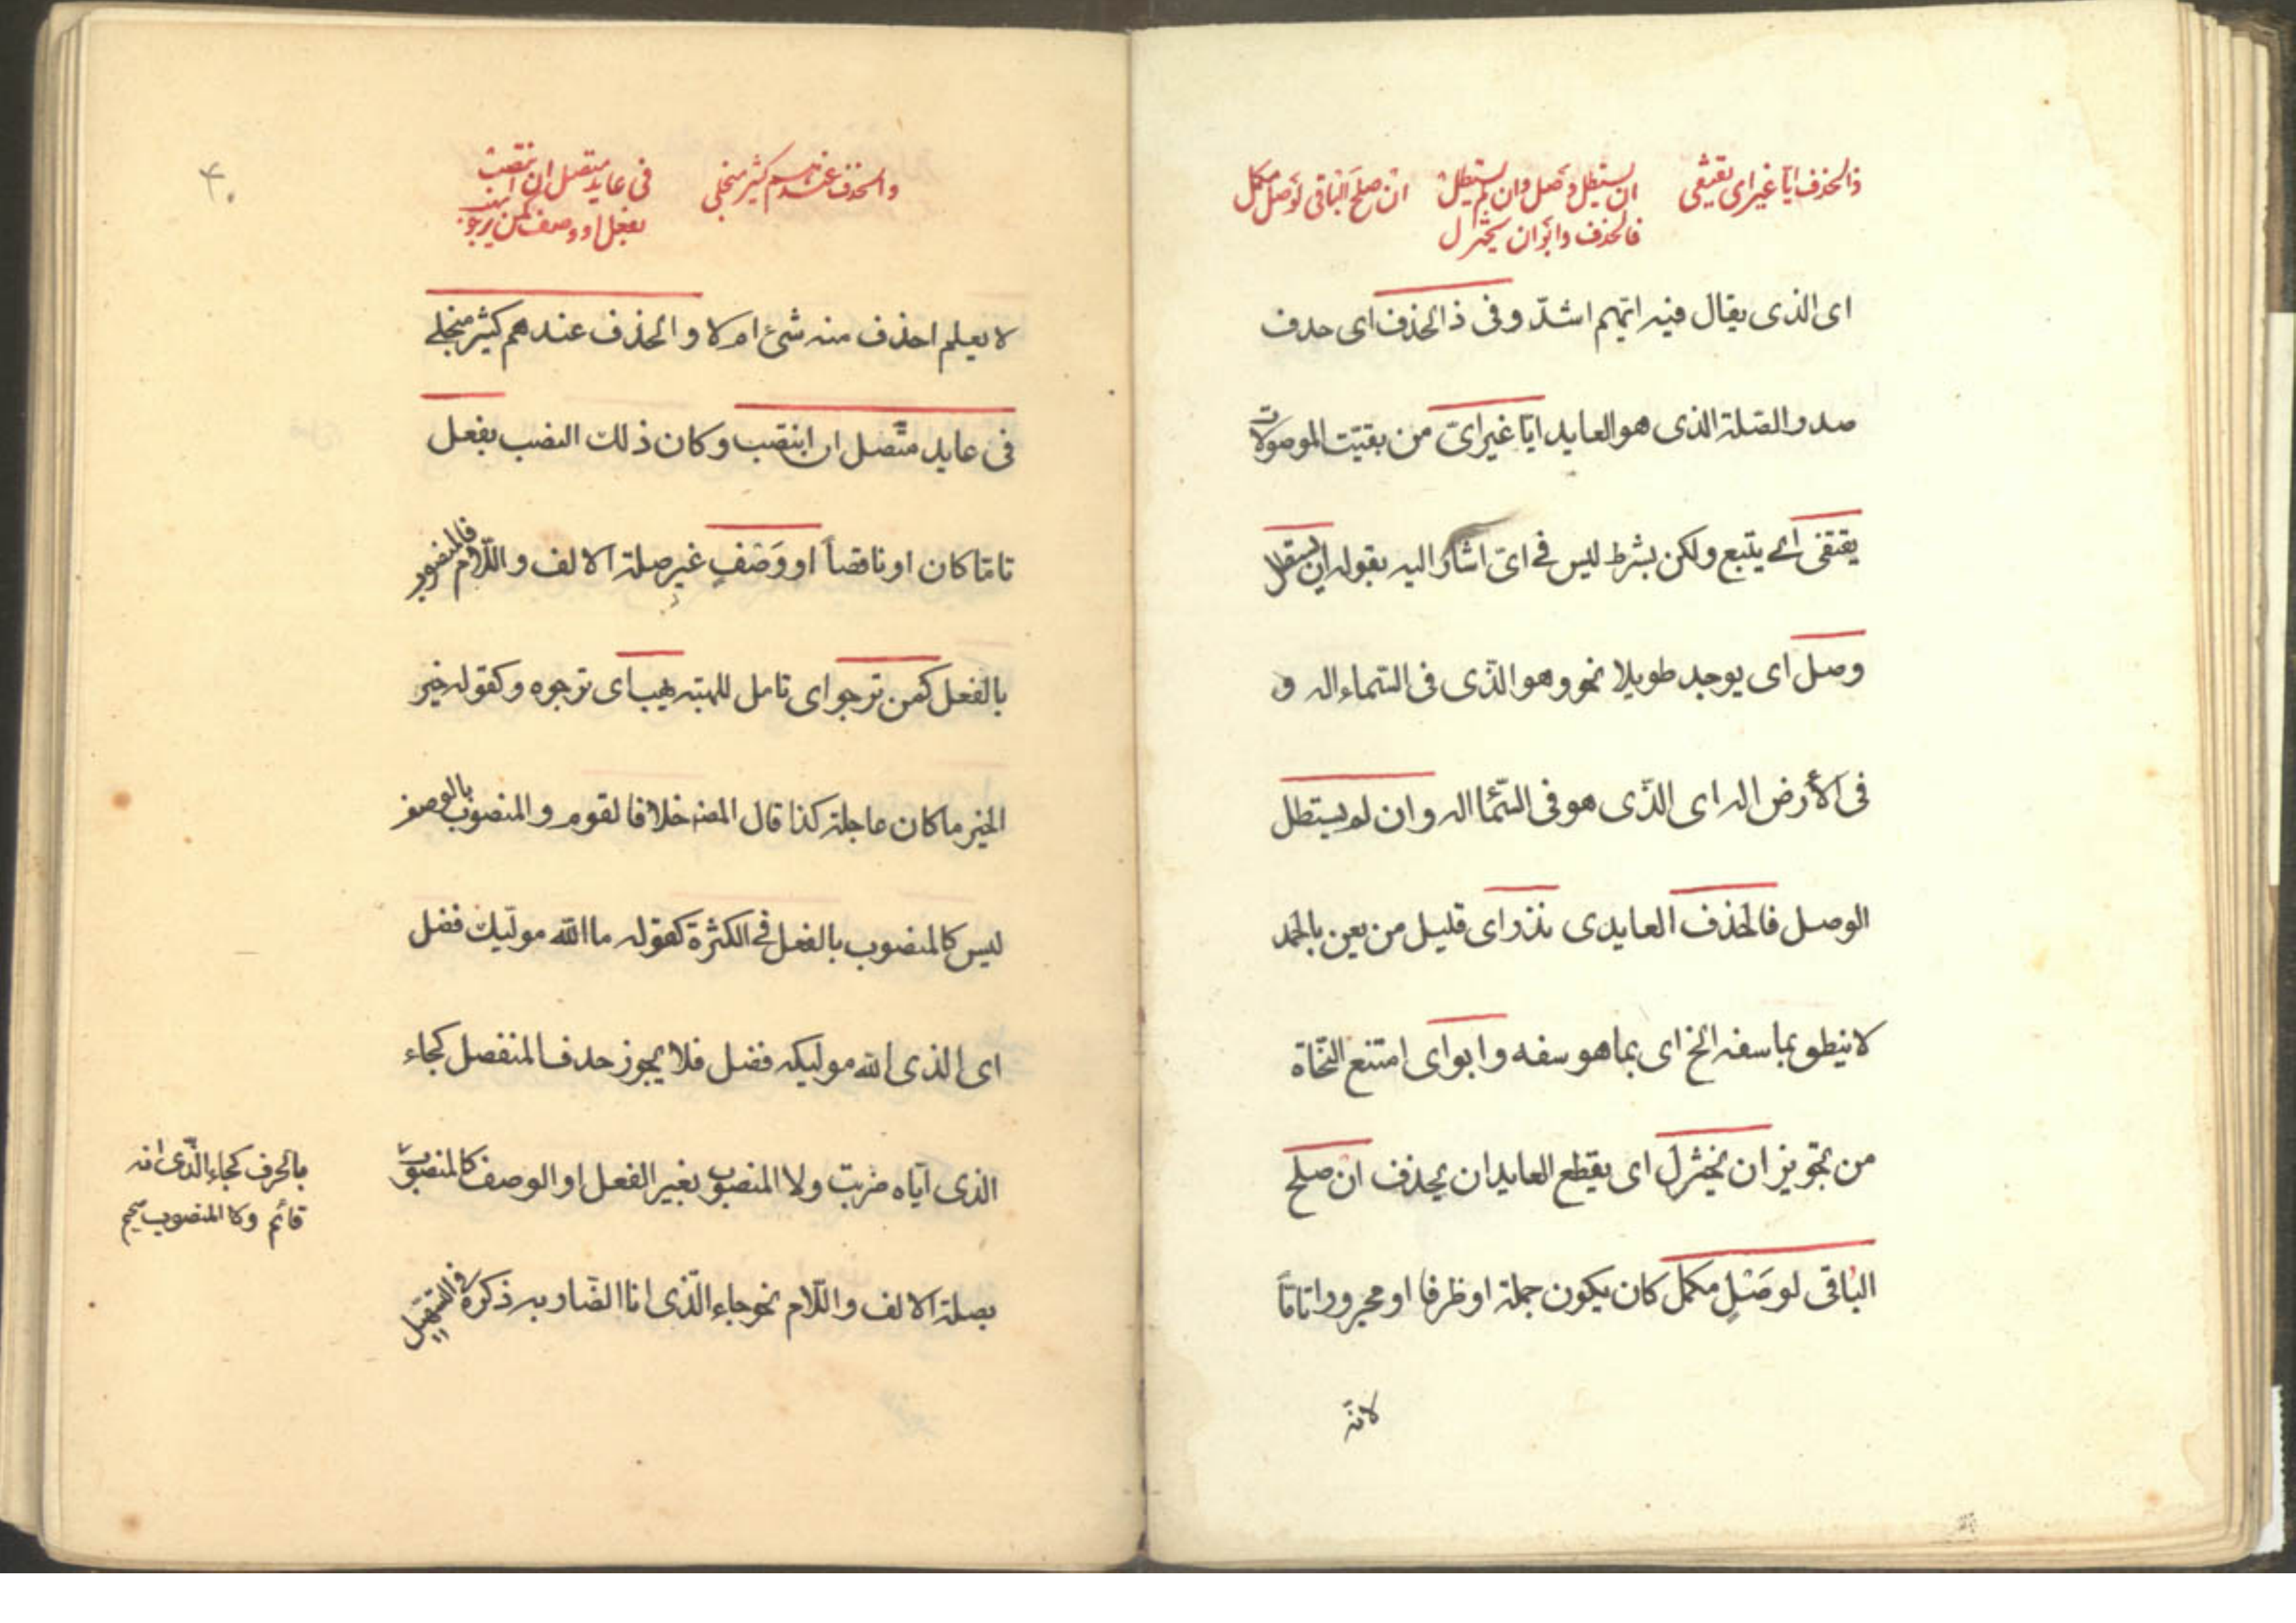 ذالحذف ايا غير اى يقتفى
ان يستطل وصل وان لم يستطل
فالحذف وابوا ان يختزل
ان صلح الباقى لوصل مكمل
اى الذى يقال فيه ايهم اشدّ وفى ذالحذف اى حدف
صدر الصلة الذى هو العايد ايا غير اىّ من بقيّت الموصولات
يقتفى اى يتبع ولكن بشرط ليس فى اىّ اشار اليه بقوله ان يستطل
وصل اى يوجد طويلا نحو وهو الذّى فى السّماء اله و
فى الأرض اله اى الذّى هو فى السّما اله وان لم يستطل
الوصل فالحذف العايدى نزر اى قليل من يعن بالحمد
لا ينطق بما سفه الخ اى بما هو سفه وابوا اى امتنع النّحاة
من تجويز ان يختزل اى يقطع العايد ان يحذف ان صلح
الباقى لوصْلٍ مكمل كان يكون جملة او ظرفا او مجرورا تامّا
لانّه
۴۰
والحذف عندهم كثير منجلى
فى عايد متصل ان انتصب
بفعل او وصف كمن نرجو يهب
لا يعلم احذف منه شئ ام لا والحذف عندهم كثير منجلے
فى عايد متّصل ان انتصب وكان ذلك النصب بفعل
تامّا كان او ناقصاً او وَصْفٍ غير صلة الالف واللّام فالمنصوب
بالفعل كمن نرجو اى نامل للهبته يهب اى نرجوه وكقوله خير
الخير ما كان عاجله كذا قال المصنه خلافا لقوم والمنصوب بالوصف
ليس كالمنصوب بالفعل فى الكثرة كقوله ما الله موليك فضل
اى الذى الله موليكه فضل فلا يجوز حدف المنفصل كجاء
الذى ايّاه ضربت ولا المنصوب بغير الفعل او الوصف كالمنصوب
بالحرف كجاء الّذى انه
قائم ولا المنصوب
بصلة الالف واللّام نحو جاء الّذى انا الضّاربه ذكره فى التسهيل